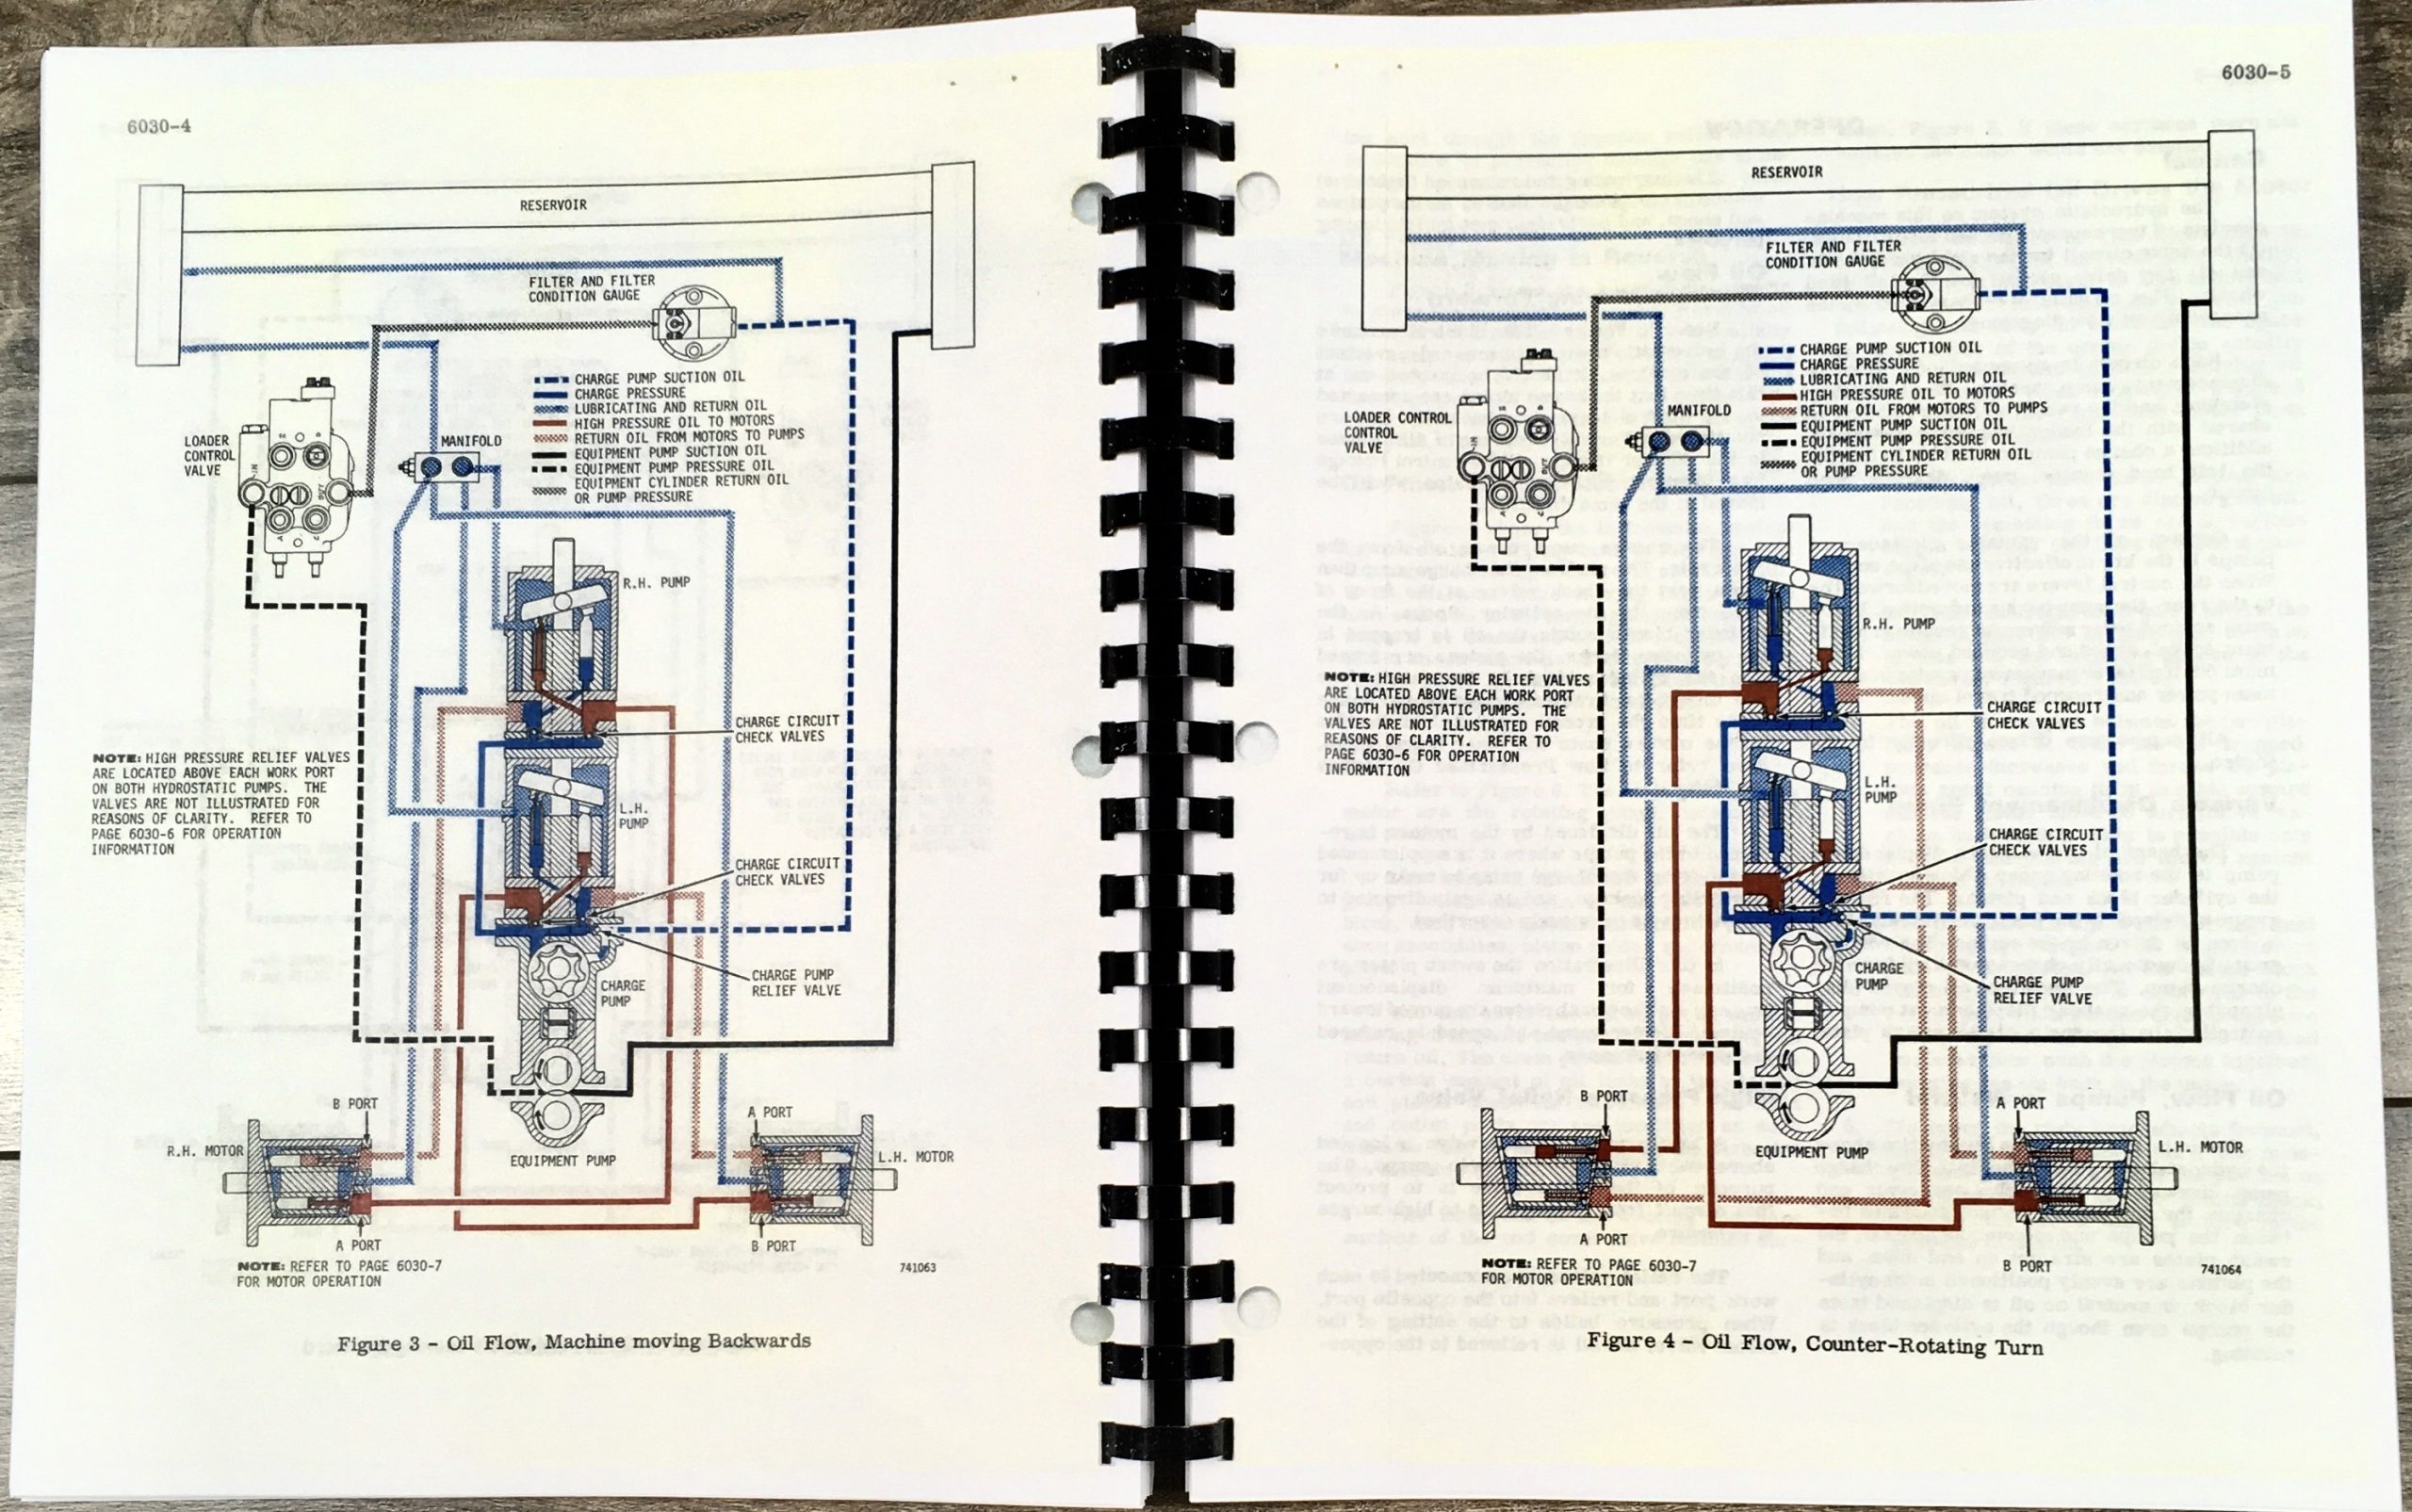 6030-4
RESERVOIR
FILTER AND FILTER
CONDITION GAUGE
CHARGE PUMP SUCTION OIL
CHARGE PRESSURE
LUBRICATING AND RETURN OIL
HIGH PRESSURE OIL TO MOTORS
RETURN OIL FROM MOTORS TO PUMPS
EQUIPMENT PUMP SUCTION OIL
EQUIPMENT PUMP PRESSURE OIL
EQUIPMENT CYLINDER RETURN OIL
OR PUMP PRESSURE
LOADER
CONTROL
VALVE
MANIFOLD
R.H. PUMP
CHARGE CIRCUIT
CHECK VALVES
NOTE: HIGH PRESSURE RELIEF VALVES
ARE LOCATED ABOVE EACH WORK PORT
ON BOTH HYDROSTATIC PUMPS. THE
VALVES ARE NOT ILLUSTRATED FOR
REASONS OF CLARITY. REFER TO
PAGE 6030-6 FOR OPERATION
INFORMATION
L.H.
PUMP
CHARGE CIRCUIT
CHECK VALVES
CHARGE PUMP
RELIEF VALVE
CHARGE
PUMP
B PORT
A PORT
R.H. MOTOR
EQUIPMENT PUMP
L.H. MOTOR
A PORT
B PORT
NOTE: REFER TO PAGE 6030-7
FOR MOTOR OPERATION
741063
Figure 3 - Oil Flow, Machine moving Backwards
6030-5
RESERVOIR
FILTER AND FILTER
CONDITION GAUGE
CHARGE PUMP SUCTION OIL
CHARGE PRESSURE
LUBRICATING AND RETURN OIL
HIGH PRESSURE OIL TO MOTORS
RETURN OIL FROM MOTORS TO PUMPS
EQUIPMENT PUMP SUCTION OIL
EQUIPMENT PUMP PRESSURE OIL
EQUIPMENT CYLINDER RETURN OIL
OR PUMP PRESSURE
LOADER CONTROL
CONTROL
VALVE
MANIFOLD
R.H. PUMP
NOTE: HIGH PRESSURE RELIEF VALVES
ARE LOCATED ABOVE EACH WORK PORT
ON BOTH HYDROSTATIC PUMPS. THE
VALVES ARE NOT ILLUSTRATED FOR
REASONS OF CLARITY. REFER TO
PAGE 6030-6 FOR OPERATION
INFORMATION
CHARGE CIRCUIT
CHECK VALVES
L.H.
PUMP
CHARGE CIRCUIT
CHECK VALVES
CHARGE
PUMP
CHARGE PUMP
RELIEF VALVE
B PORT
A PORT
EQUIPMENT PUMP
L.H. MOTOR
A PORT
B PORT
NOTE: REFER TO PAGE 6030-7
FOR MOTOR OPERATION
741064
Figure 4 - Oil Flow, Counter-Rotating Turn